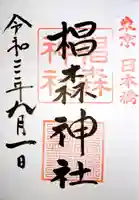 東京 日本橋
椙森神社
椙森神社
令和三年九月一日